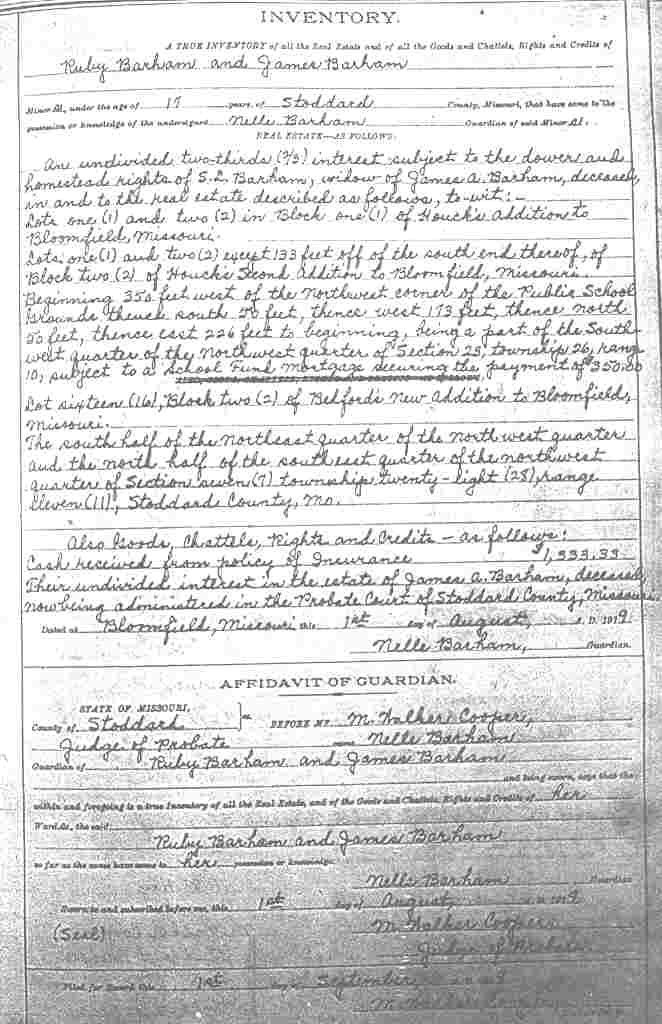 INVENTORY.
A TRUE INVENTORY of all the Real Estate and of all the Goods and Chattels, Rights and Credits of
Ruby Barham and James Barham
Minor s, under the age of 17 years, of Stoddard County, Missouri, that have come to the
possession or knowledge of the undersigned Nelle Barham Guardian of said Minor s:
REAL ESTATE—AS FOLLOWS:
An undivided two-thirds (2/3) interest subject to the dower and
homestead rights of S.L. Barham, widow of James A. Barham, deceased,
in and to the real estate described as follows, to-wit:-
Lots one (1) and two (2) in Block one (1) of Houck's Addition to
Bloomfield, Missouri.
Lots one (1) and two (2) except 133 feet off of the south end thereof, of
Block two (2) of Houck's Second Addition to Bloomfield, Missouri.
Beginning 350 feet west of the Northwest corner of the Public School
Grounds thence south 50 feet, thence west 173 feet, thence north
50 feet, thence east 226 feet to beginning, being a part of the South-
west quarter of the Northwest quarter of Section 25, township 26, range
10, subject to a School Fund Mortgage securing the payment of $350.00
Lot sixteen (16), Block two (2) of Bedford's New Addition to Bloomfield,
Missouri.
The south half of the Northeast quarter of the North west quarter
and the north half of the southeast quarter of the northwest
quarter of Section seven (7) township twenty-eight (28), range
Eleven (11), Stoddard County, Mo.
Also Goods, Chattels, Rights and Credits - as follows:
Cash received from policy of Insurance $1,333.33
Their undivided interest in the estate of James A. Barham, deceased,
now being administered in the Probate Court of Stoddard County, Missouri.
Dated at Bloomfield, Missouri this 1st day of August, A. D. 1919
Nelle Barham, Guardian.
AFFIDAVIT OF GUARDIAN.
STATE OF MISSOURI,
County of Stoddard } ss BEFORE ME M. Walker Cooper,
Judge of Probate came Nelle Barham
Guardian of Ruby Barham and James Barham
and being sworn, says that the
within and foregoing is a true Inventory of all the Real Estate, and of the Goods and Chattels, Rights and Credits of her
Wards, the said
Ruby Barham and James Barham
so far as the same have come to her possession or knowledge.
Nelle Barham Guardian
Sworn to and subscribed before me, this 1st day of August, A. D. 1919
(Seal) M. Walker Cooper
Judge of Probate
Filed for Record this 1st day of September
M. Walker Cooper